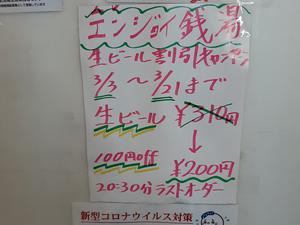 エンジョイ銭湯
生ビール割引キャンペーン
3/3 〜 3/21まで
生ビール ¥310円
↓
100円off ¥200円
20:30分ラストオーダー
新型コロナウイルス対策